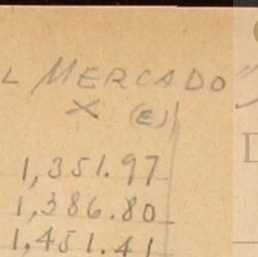 L MERCADO"
X (E)
1,351.97
1,386.80
1,451.41